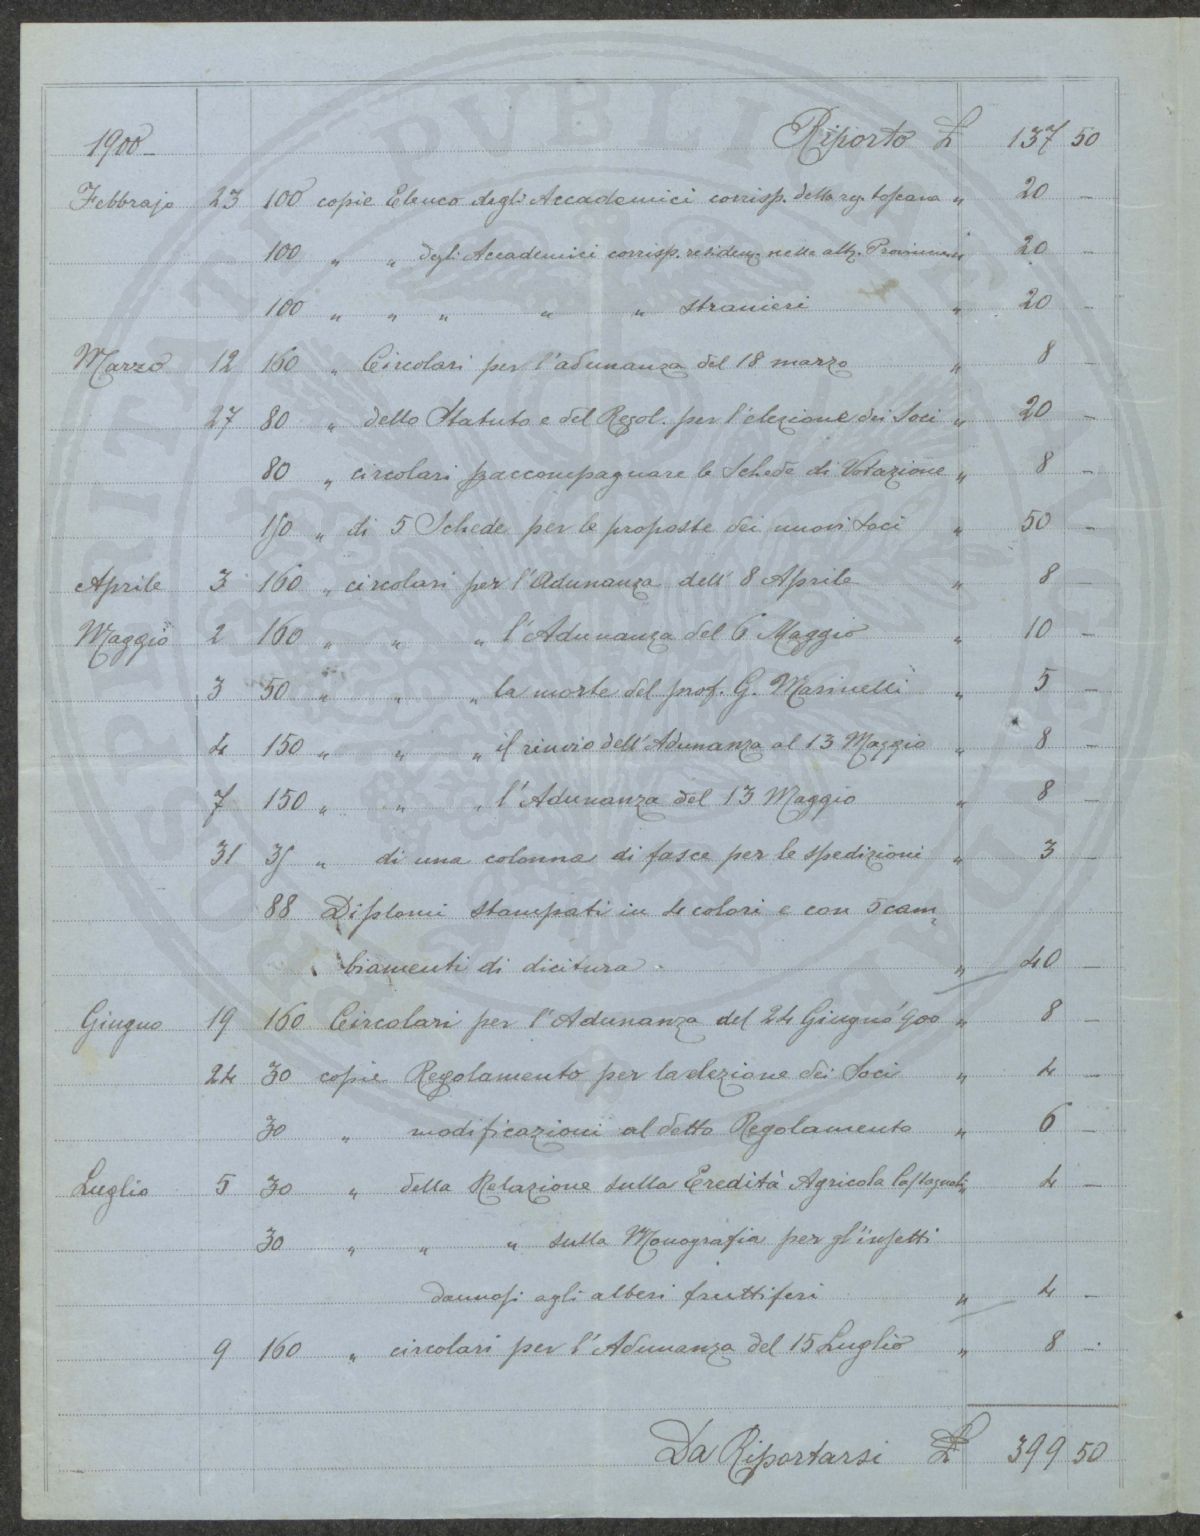 Riporto £ 137 50
1900
Febbrajo 23 100 copie Elenco degli Accademici corrisp. della reg. toscana " 20 —
100 " " degli Accademici corrisp. residenz. nelle alt. Provincie " 20 —
100 " " " " " stranieri " 20 —
Marzo 12 160 " Circolari per l'adunanza del 18 marzo " 8 —
27 80 " dello Statuto e del Regol. per l'elezione dei Soci " 20 —
80 " circolari p accompagnare le Schede di Votazione " 8 —
150 " di 5 Schede per le proposte dei nuovi Soci " 50 —
Aprile 3 160 " circolari per l'Adunanza dell' 8 Aprile " 8 —
Maggio 2 160 " " " l'Adunanza del 6 Maggio " 10 —
3 50 " " " la morte del prof. G. Marinelli " 5 —
4 150 " " " il rinvio dell'Adunanza al 13 Maggio " 8 —
7 150 " " " l'Adunanza del 13 Maggio " 8 —
31 35 " di una colonna di fasce per le spedizioni " 3 —
88 Diplomi stampati in 4 colori e con 5 cam
biamenti di dicitura " 40 —
Giugno 19 160 Circolari per l'Adunanza del 24 Giugno '900 " 8 —
24 30 copie Regolamento per la elezione dei Soci " 4 —
30 " modificazioni al detto Regolamento " 6 —
Luglio 5 30 " della Relazione sulla Eredità Agricola " 4 —
30 " " " sulla Monografia per gl'insetti
dannosi agli alberi fruttiferi " 4 —
9 160 " circolari per l'Adunanza del 15 Luglio " 8 —
Da Riportarsi £ 399 50